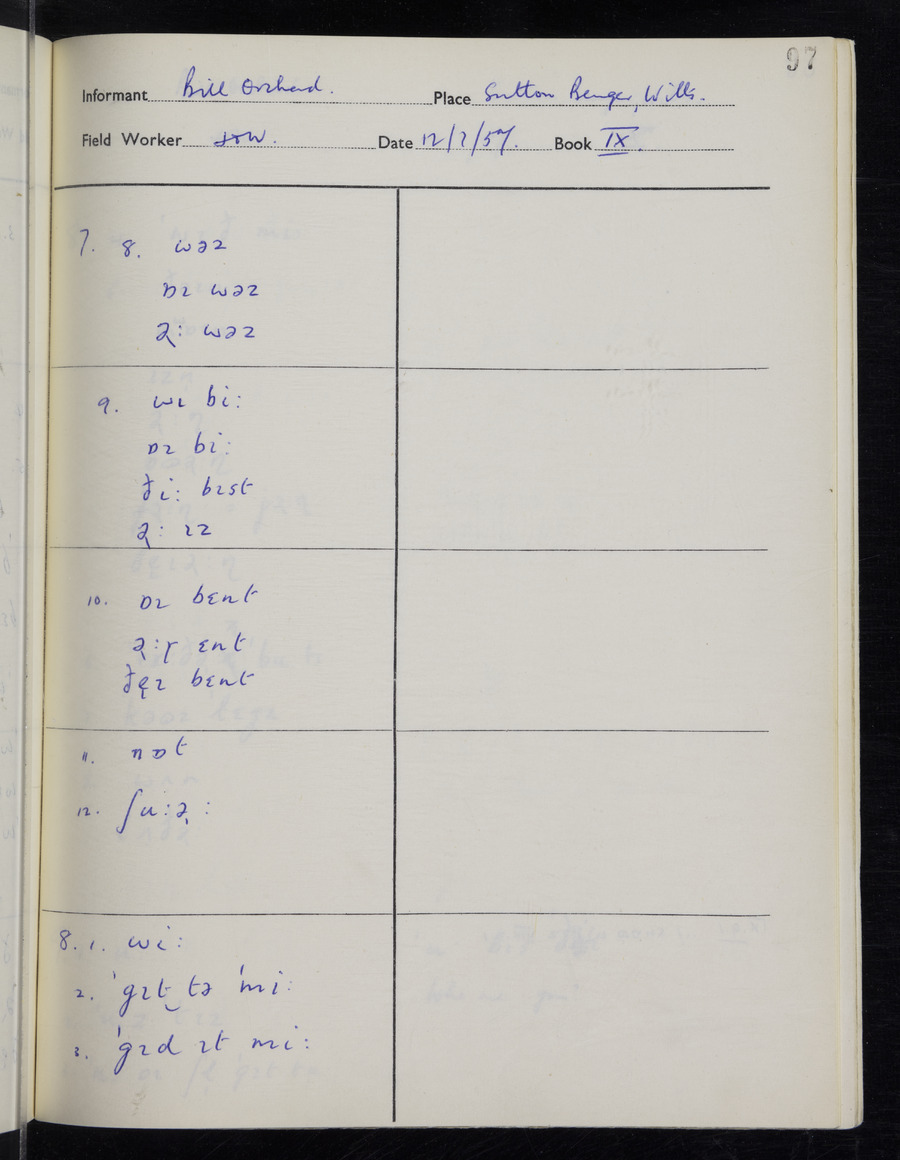 97
Informant Bill Orchard. Place Sutton Benger, Wilts.
Field Worker Date 12/7/57. Book IX.
7. 8. wəz
ɒɪ wəz
ə̢: wəz
9. wɪ bi:
ɒɪ bi:
ði: bɪst
ə̢: ɪz
10. ɒɪ bɛnt
ə̢:ɼ ɛnt
ðe̢ɪ bɛnt
11. nɒt
12. ʃu:ə̢:
8. 1. wi:
2. ˈgɪt‿tə ˈmi:
3. ˈgɪd ɪt mi: